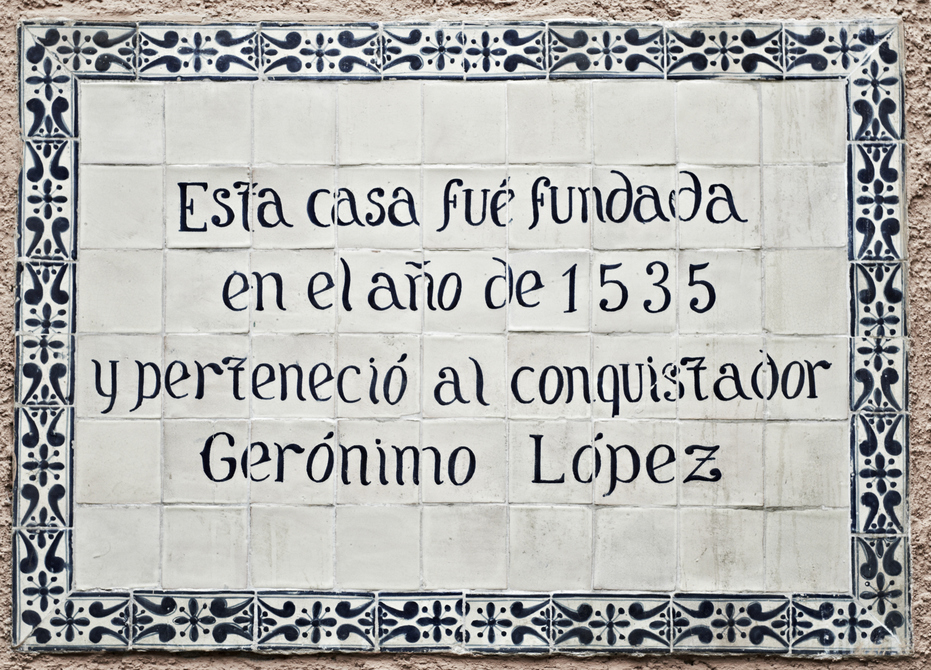 Esta casa fué fundada
en el año de 1535
y perteneció al conquistador
Gerónimo López